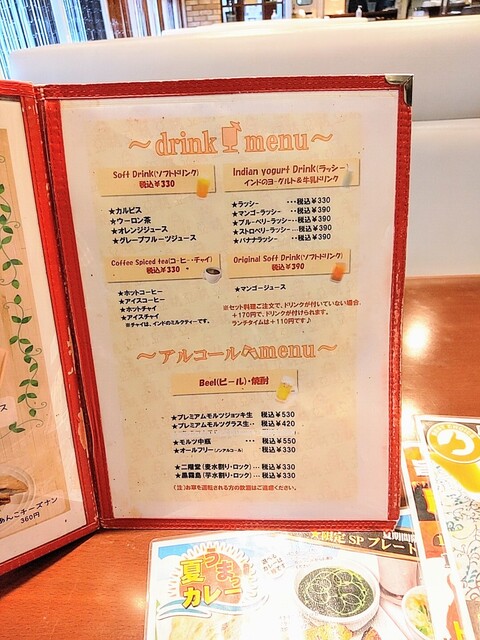 ～drink menu～
Soft Drink(ソフトドリンク)
税込¥330
★カルピス
★ウーロン茶
★オレンジジュース
★グレープフルーツジュース
Indian yogurt Drink(ラッシー)
インドのヨーグルト&牛乳ドリンク
★ラッシー …税込¥330
★マンゴーラッシー …税込¥390
★ブルーベリーラッシー…税込¥390
★ストロベリーラッシー…税込¥390
★バナナラッシー …税込¥390
Coffee Spiced tea(コーヒー・チャイ)
税込¥330
★ホットコーヒー
★アイスコーヒー
★ホットチャイ
★アイスチャイ
※チャイは、インドのミルクティーです。
Original Soft Drink(ソフトドリンク)
税込¥390
★マンゴージュース
※セット料理ご注文で、ドリンクが付いていない場合
+170円で、ドリンクが付けられます。
ランチタイムは+110円です♪
～アルコールmenu～
Beel(ビール)・焼酎
★プレミアムモルツジョッキ生 税込¥530
★プレミアムモルツグラス生… 税込¥420
★モルツ中瓶 … 税込¥550
★オールフリー(ノンアルコール) 税込¥330
★二階堂(麦水割り・ロック)… 税込¥330
★黒霧島(芋水割り・ロック)… 税込¥330
(注)お車を運転される方の飲酒はご遠慮ください。
あんこチーズナン
360円
夏うまっ
カレー
限定SPプレート